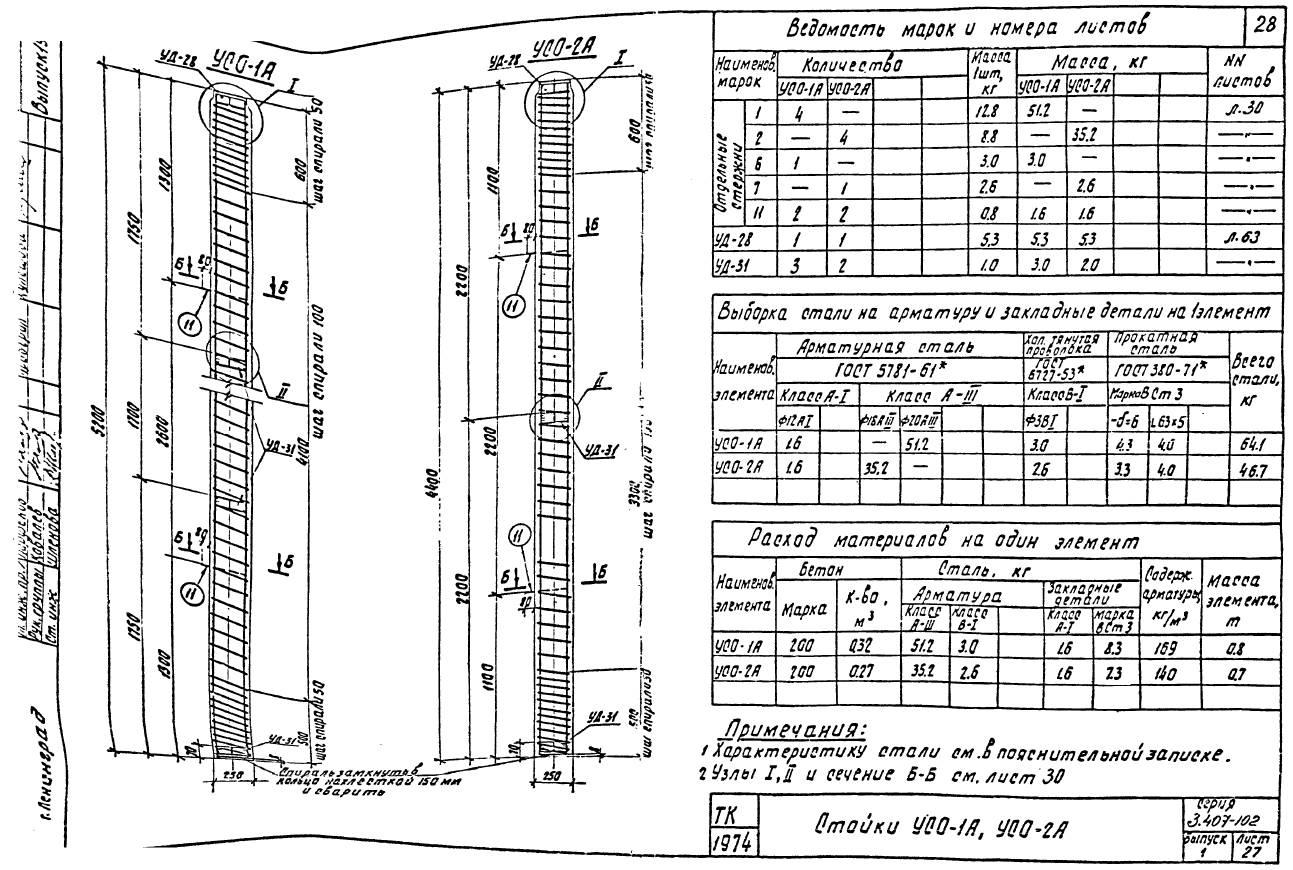 28
Ведомость марок и номера листов
Наименов. марок | Количество | Масса 1шт, кг | Масса, кг | NN листов
УСО-1А | УСО-2А | УСО-1А | УСО-2А
Отдельные стержни
1 | 4 | — | 12.8 | 51.2 | — | л.30
2 | — | 4 | 8.8 | — | 35.2 | —"—
6 | 1 | — | 3.0 | 3.0 | — | —"—
7 | — | 1 | 2.6 | — | 2.6 | —"—
11 | 2 | 2 | 0.8 | 1.6 | 1.6 | —"—
УД-28 | 1 | 1 | 5.3 | 5.3 | 5.3 | л.63
УД-31 | 3 | 2 | 1.0 | 3.0 | 2.0 | —"—
Выборка стали на арматуру и закладные детали на 1 элемент
Наименов. элемента | Арматурная сталь | Хол. тянутая проволока | Прокатная сталь | Всего стали, кг
ГОСТ 5781-61* | ГОСТ 6727-53* | ГОСТ 380-71*
Класс А-I | Класс А-III | Класс В-I | Марка ВСт 3
ф12АI | ф16АIII | ф20АIII | ф3ВI | -δ=6 | L63×5
УСО-1А | 1.6 | — | 51.2 | 3.0 | 4.3 | 4.0 | 64.1
УСО-2А | 1.6 | 35.2 | — | 2.6 | 3.3 | 4.0 | 46.7
Расход материалов на один элемент
Наименов. элемента | Бетон | Сталь, кг | Содерж. арматуры, кг/м³ | Масса элемента, т
Марка | К-во, м³ | Арматура | Закладные детали
Класс А-III | Класс В-I | Класс А-I | Марка ВСт3
УСО-1А | 200 | 0.32 | 51.2 | 3.0 | 1.6 | 8.3 | 169 | 0.8
УСО-2А | 200 | 0.27 | 35.2 | 2.6 | 1.6 | 7.3 | 140 | 0.7
Примечания:
1 Характеристику стали см. в пояснительной записке.
2 Узлы I, II и сечение Б-Б см. лист 30
ТК
1974
Стойки УСО-1А, УСО-2А
Серия
3.407-102
Выпуск
1
Лист
27
УСО-1А
УД-28
I
5200
1750
1700
1750
1300
2600
1300
Б
80
Б
11
II
УД-31
Б
80
Б
11
50
шаг спирали
600
шаг спирали 100
4100
шаг спирали 50
500
УД-31
70
250
Спираль замкнуть в
кольцо нахлесткой 150 мм
и сварить
УСО-2А
УД-28
I
4400
2200
2200
1100
2200
1100
Б
80
Б
11
II
УД-31
11
Б
80
Б
600
3300
шаг спирали
шаг спирали 50
500
УД-31
70
250
Выпуск 1
Рук. группы Ковалев
Ст. инж. Шленова
г. Ленинград